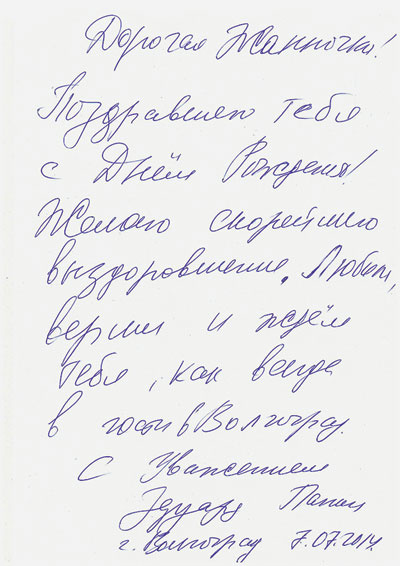 Дорогая Жанночка!
Поздравляю тебя
с Днём Рождения!
Желаю скорейшего
выздоровления. Любим,
верим и ждём
тебя, как всегда
в гости в Волгоград.
С Уважением
Эдуард
г. Волгоград 7.07.2014